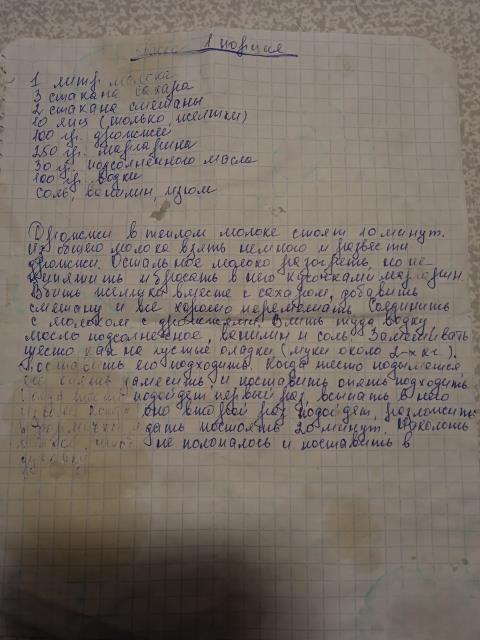 1 порция
1 литр молока
3 стакана сахара
2 стакана сметаны
10 яиц (только желтки)
100 гр. дрожжей
250 гр. маргарина
30 гр. подсолненного масла
100 гр. водки
соль, ванилин, изюм
Дрожжи в теплом молоке стоят 10 минут.
Из общего молока взять немного и развести
дрожжи. Остальное молоко разогреть, но не
кипятить и бросать в него кусочками маргарин
Взбить желтки вместе с сахаром, добавить
сметану и все хорошо перемешать. Соединить
с молоком с дрожжями. Влить туда водку,
масло подсолненное, ванилин и соль. Замешивать
тесто как на густые оладки (муки около 2-х кг).
Поставить его подходить. Когда тесто подымется,
его опять замесить и поставить опять подходить.
подойдет первый раз, всыпать в него
изюм. Когда оно второй раз подойдет, разложить
в формочки и дать постоять 20 минут. Наколоть
не полопалось и поставить в
духовку